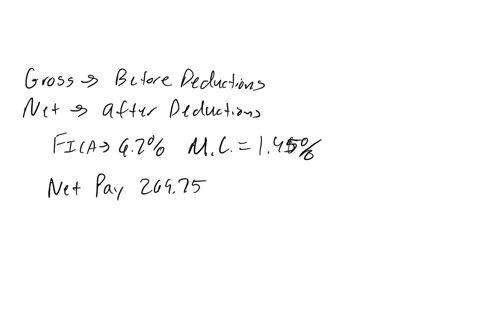 Gross → Before Deductions
Net → after Deductions
FICA → 6.2% M.C. = 1.45%
Net Pay 269.75